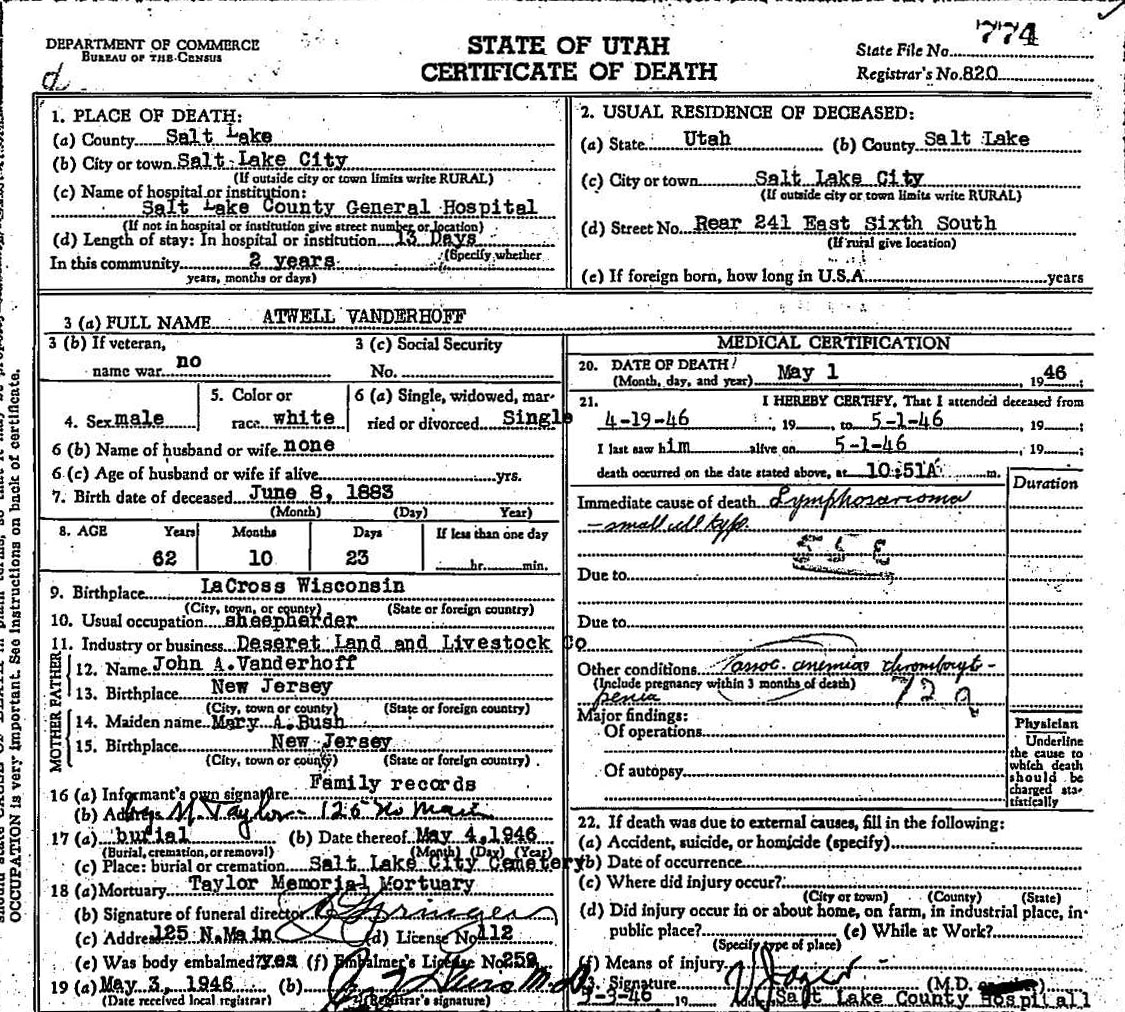 DEPARTMENT OF COMMERCE
BUREAU OF THE CENSUS
d
STATE OF UTAH
CERTIFICATE OF DEATH
State File No. 774
Registrar's No. 820
1. PLACE OF DEATH:
(a) County Salt Lake
(b) City or town Salt Lake City
(If outside city or town limits write RURAL)
(c) Name of hospital or institution:
Salt Lake County General Hospital
(If not in hospital or institution give street number or location)
(d) Length of stay: In hospital or institution 13 Days
(Specify whether
In this community 2 years
years, months or days)
2. USUAL RESIDENCE OF DECEASED:
(a) State Utah (b) County Salt Lake
(c) City or town Salt Lake City
(If outside city or town limits write RURAL)
(d) Street No. Rear 241 East Sixth South
(If rural give location)
(e) If foreign born, how long in U.S.A. years
3 (a) FULL NAME ATWELL VANDERHOFF
3 (b) If veteran,
name war no
3 (c) Social Security
No.
4. Sex male
5. Color or
race white
6 (a) Single, widowed, mar-
ried or divorced Single
6 (b) Name of husband or wife none
6 (c) Age of husband or wife if alive yrs.
7. Birth date of deceased June 8, 1883
(Month) (Day) Year)
8. AGE Years Months Days If less than one day
62 10 23 hr. min.
9. Birthplace LaCross Wisconsin
(City, town, or county) (State or foreign country)
10. Usual occupation sheepherder
11. Industry or business Deseret Land and Livestock Co
FATHER
12. Name John A. Vanderhoff
13. Birthplace New Jersey
(City, town or county) (State or foreign country)
MOTHER
14. Maiden name Mary A. Bush
15. Birthplace New Jersey
(City, town or county) (State or foreign country)
16 (a) Informant's own signature Family records
(b) Address by N. Taylor 125 No Main
17 (a) burial (b) Date thereof May 4, 1946
(Burial, cremation, or removal) (Month) (Day) (Year)
(c) Place: burial or cremation Salt Lake City Cemetery
18 (a) Mortuary Taylor Memorial Mortuary
(b) Signature of funeral director
(c) Address 125 N. Main (d) License No 112
(e) Was body embalmed? yes (f) Embalmer's License No 259
19 (a) May 3, 1946 (b) M.D.
(Date received local registrar) (Registrar's signature)
MEDICAL CERTIFICATION
20. DATE OF DEATH:
(Month, day, and year) May 1, 1946;
21. I HEREBY CERTIFY, That I attended deceased from
4-19-46, 19 , to 5-1-46 19 ;
I last saw him alive on 5-1-46, 19 ;
death occurred on the date stated above, at 10:51A. m.
Duration
Immediate cause of death Lymphosarcoma
- small cell type
Due to
Due to
Other conditions assoc. anemia, thrombocyto-
(Include pregnancy within 3 months of death)
penia 72a
Major findings:
Of operations
Of autopsy
Physician
Underline
the cause to
which death
should be
charged sta-
tistically
22. If death was due to external causes, fill in the following:
(a) Accident, suicide, or homicide (specify)
(b) Date of occurrence
(c) Where did injury occur?
(City or town) (County) (State)
(d) Did injury occur in or about home, on farm, in industrial place, in
public place? (e) While at Work?
(Specify type of place)
(f) Means of injury
23. Signature (M.D.
5-3-46 19 Salt Lake County Hospital
OCCUPATION is very important. See instructions on back of certificate.